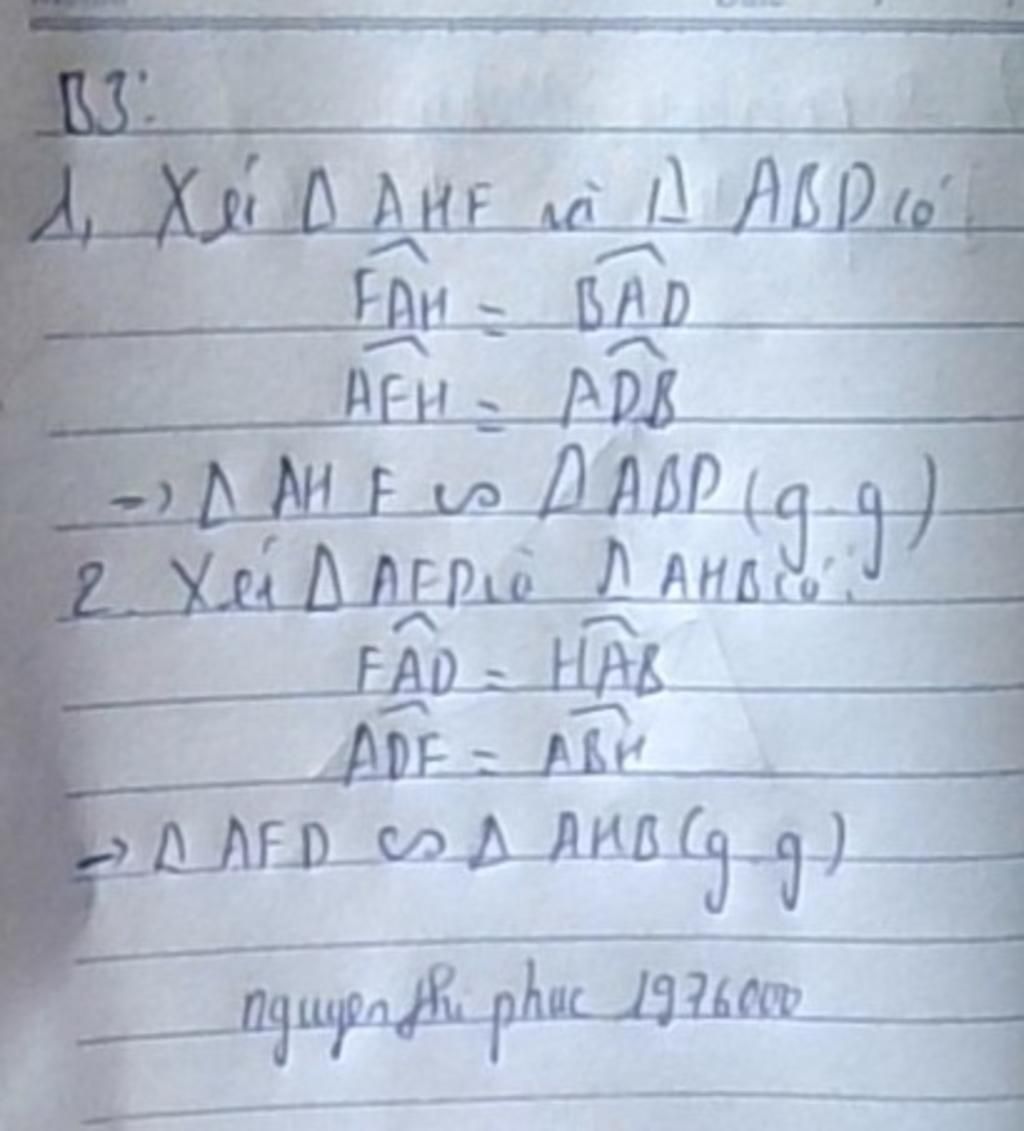 B3:
1, Xét Δ AHF và Δ ABD có:
\widehat{FAH} = \widehat{BAD}
\widehat{AFH} = \widehat{ADB}
→ Δ AHF ∽ Δ ABD (g-g)
2. Xét Δ AFD và Δ AHB có:
\widehat{FAD} = \widehat{HAB}
\widehat{ADF} = \widehat{ABH}
→ Δ AFD ∽ Δ AHB (g-g)
nguyen thi phuc 1976000